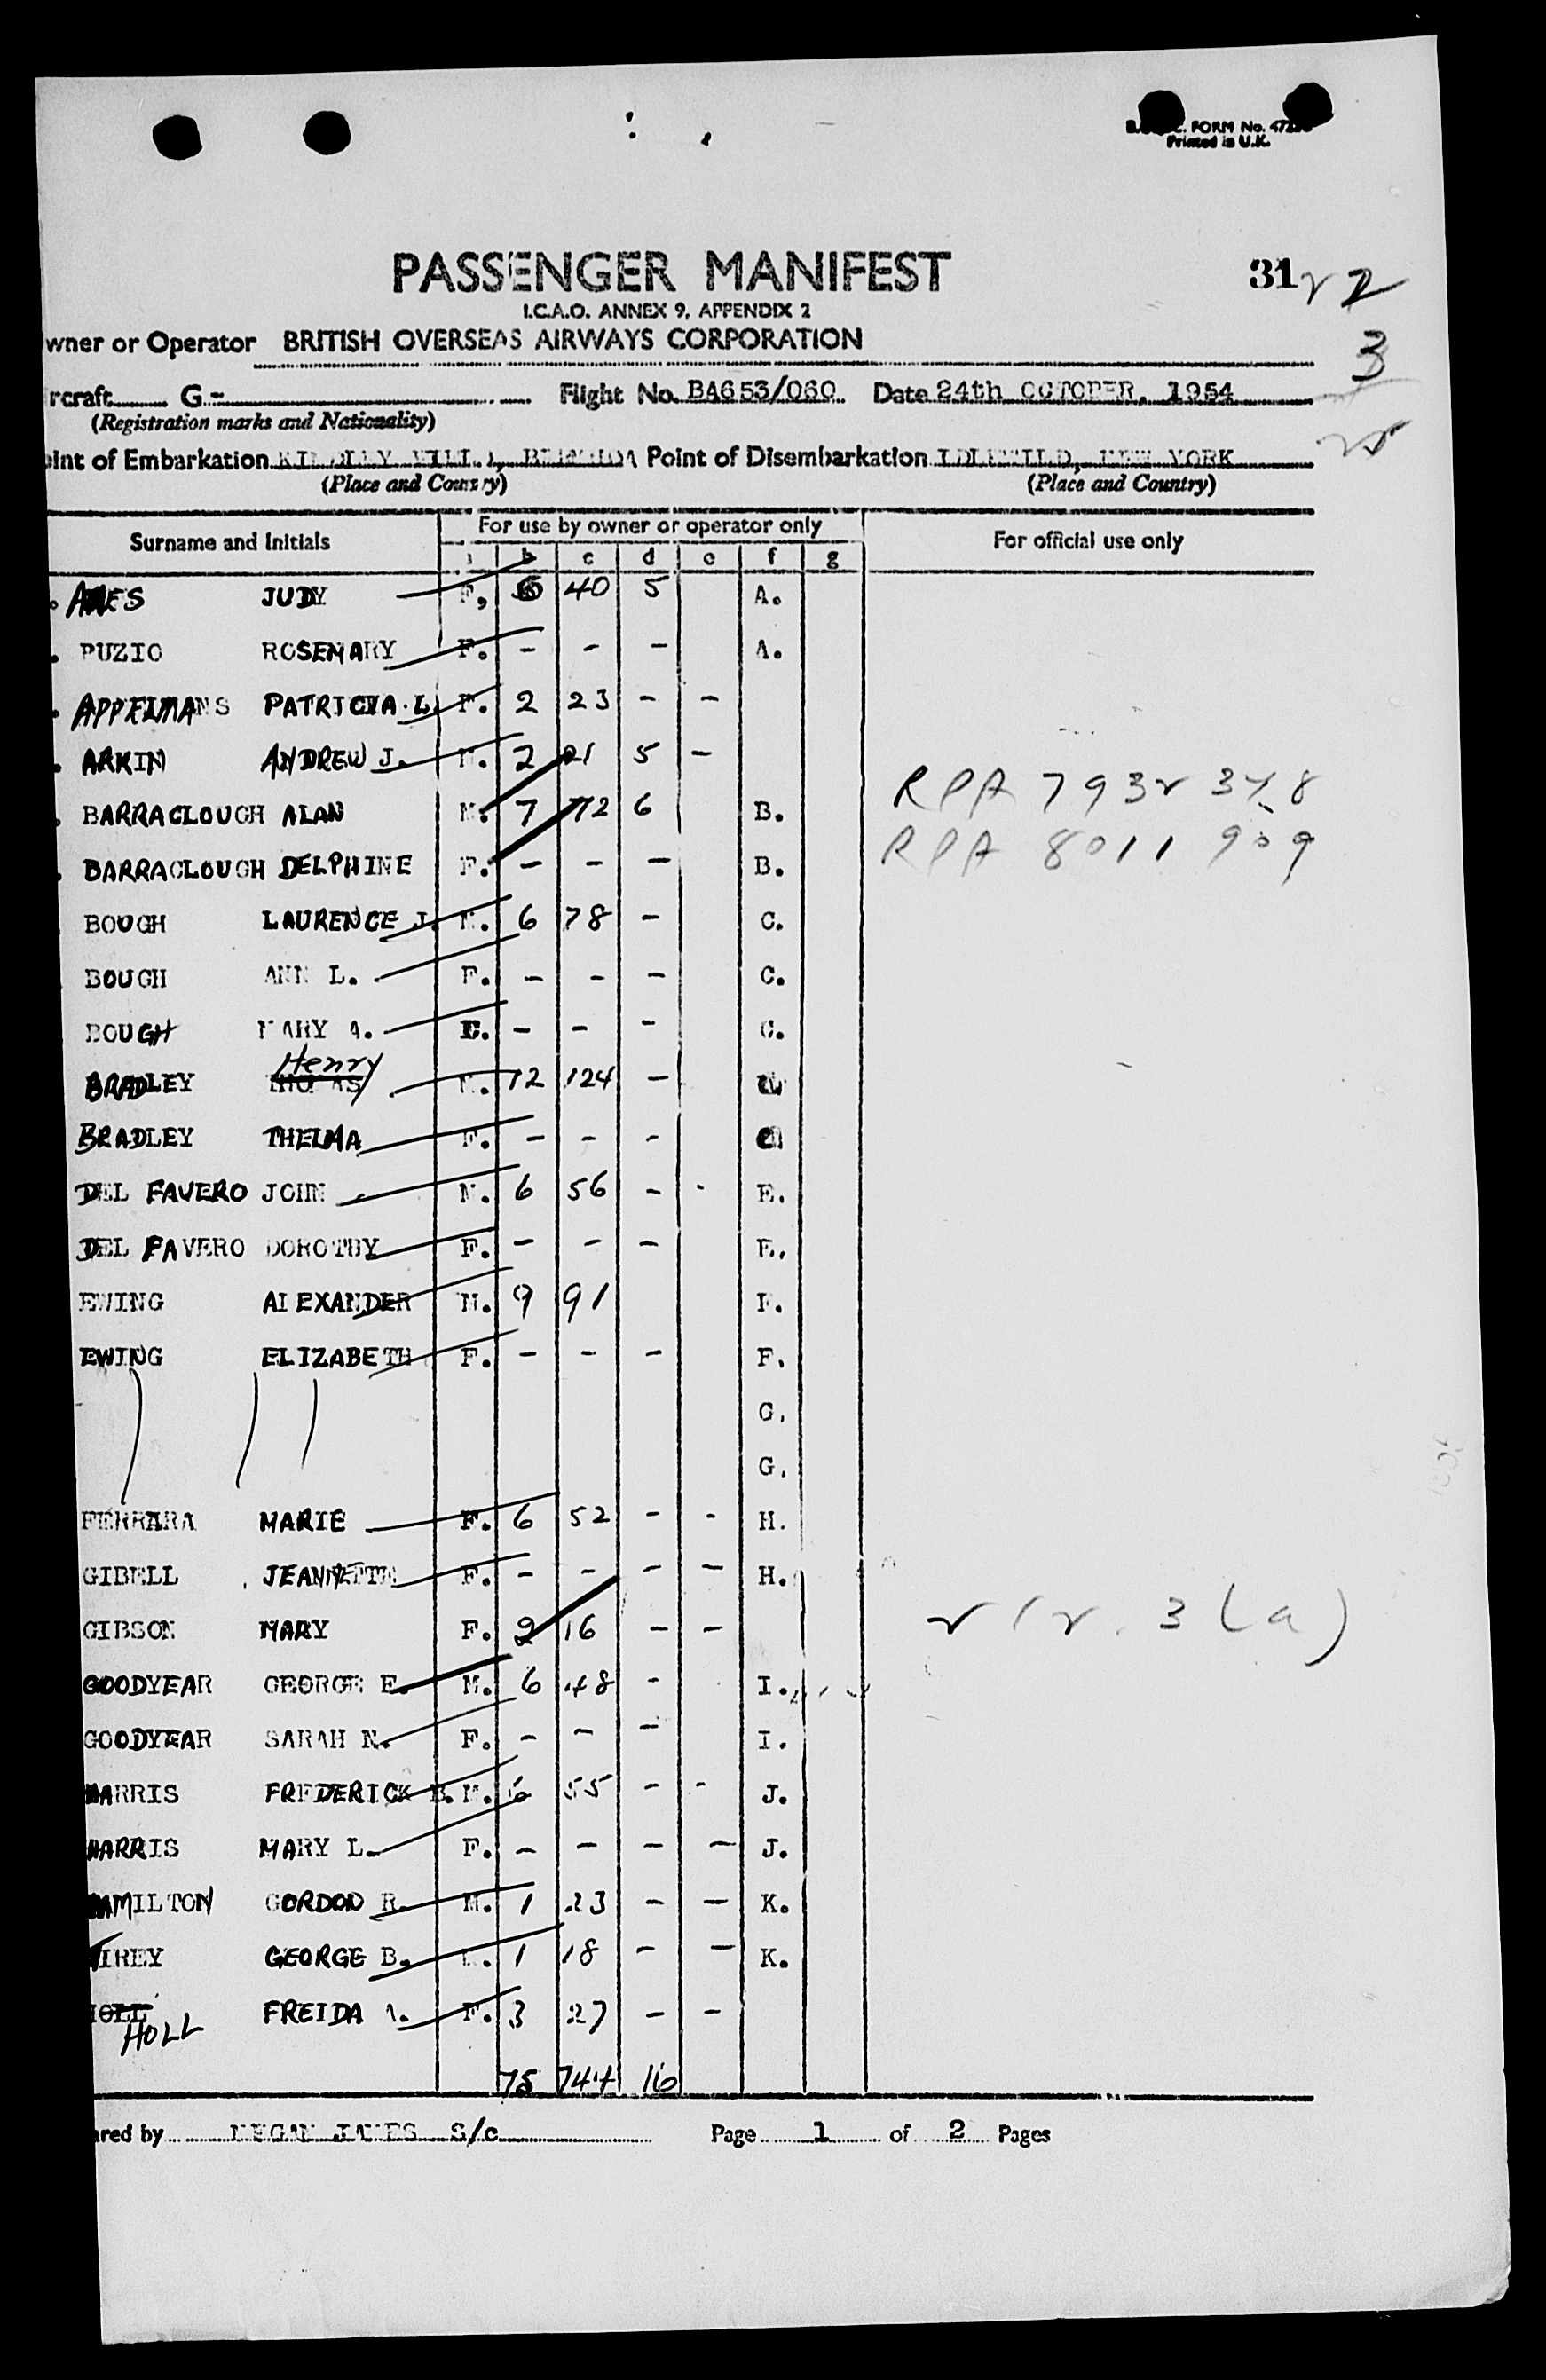 FORM No.
Printed in U.K.
PASSENGER MANIFEST
31 2 2
I.C.A.O. ANNEX 9, APPENDIX 2
wner or Operator BRITISH OVERSEAS AIRWAYS CORPORATION
3
rcraft G- Flight No. BA653/060 Date 24th OCTOBER, 1954
(Registration marks and Nationality)
int of Embarkation KINDLEY FIELD, BERMUDA Point of Disembarkation IDLEWILD, NEW YORK
(Place and Country) (Place and Country)
Surname and Initials For use by owner or operator only For official use only
b c d e f g
JUDY F. 40 5 A.
PUZIO ROSEMARY F. - - - A.
APPELMANS PATRICIA L. F. 2 23 - -
ARKIN ANDREW J. M. 2 21 5 -
BARRACLOUGH ALAN M. 7 72 6 B. RPA 7932
BARRACLOUGH DELPHINE F. - - - B. RPA 8011 909
BOUGH LAURENCE J. M. 6 78 - C.
BOUGH ANN L. F. - - - C.
BOUGH MARY A. - - - C.
Henry
BRADLEY M. 12 124 -
BRADLEY THELMA F. - - -
DEL FAVERO JOHN M. 6 56 - - E.
DEL FAVERO DOROTHY F. - - - E.
EWING ALEXANDER M. 9 91 F.
EWING ELIZABETH F. - - - F.
G.
G.
FERRARA MARIE F. 6 52 - - H.
GIBELL JEANNETTE F. - - - - H.
GIBSON MARY F. 2 16 - - 212.3(a)
GOODYEAR GEORGE E. M. 6 48 - I.
GOODYEAR SARAH N. F. - - - I.
HARRIS FREDERICK B. M. 6 55 - - J.
HARRIS MARY L. F. - - - - J.
HAMILTON GORDON R. M. 1 23 - - K.
IREY GEORGE B. M. 1 18 - - K.
HOLL FREIDA A. F. 3 27 - -
HOLL
75 744 16
ared by MEGAN JAMES S/c Page 1 of 2 Pages